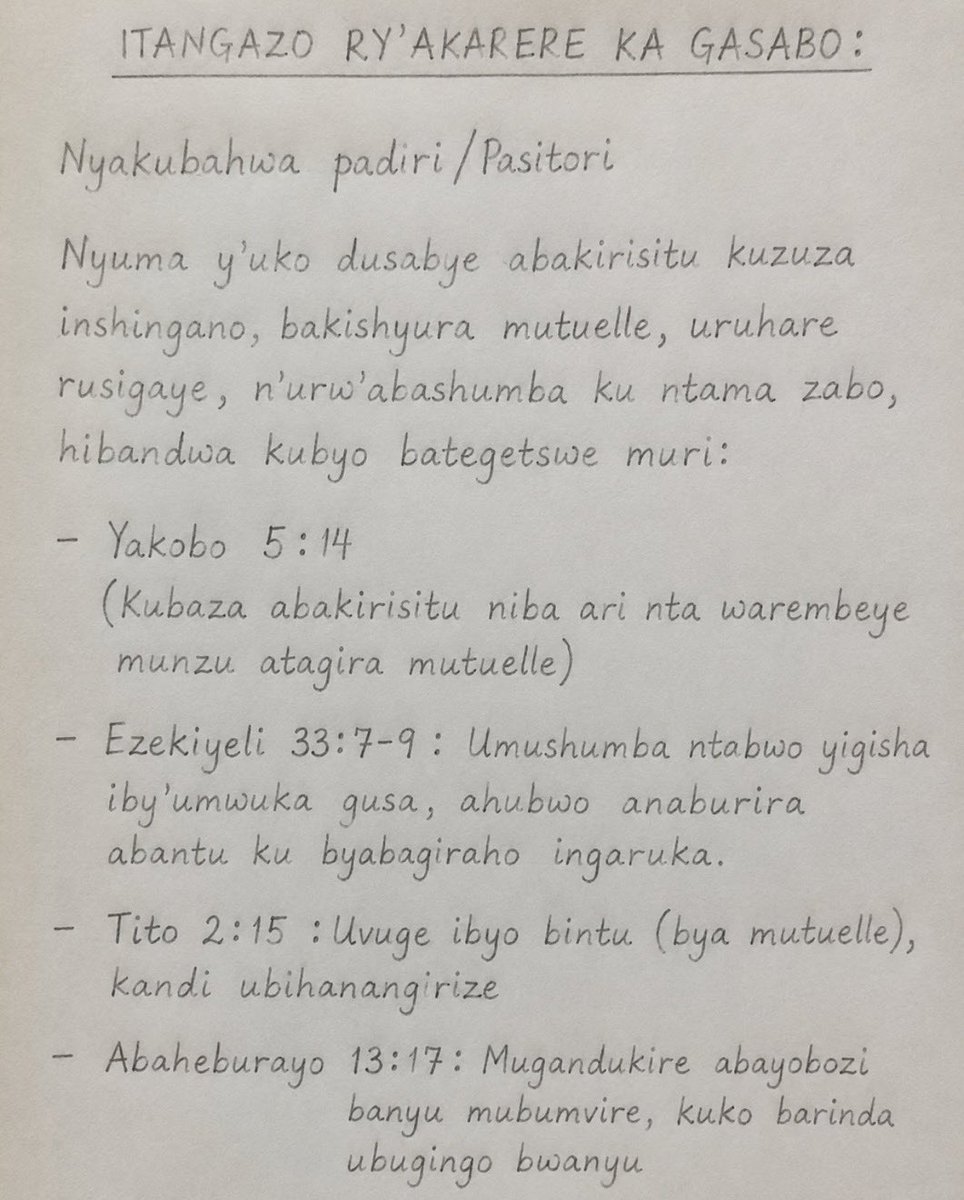 ITANGAZO RY'AKARERE KA GASABO:
Nyakubahwa padiri/Pasitori
Nyuma y'uko dusabye abakirisitu kuzuza
inshingano, bakishyura mutuelle, uruhare
rusigaye, n'urw'abashumba ku ntama zabo,
hibandwa kubyo bategetswe muri:
- Yakobo 5:14
(Kubaza abakirisitu niba ari nta warembeye
munzu atagira mutuelle)
- Ezekiyeli 33:7-9: Umushumba ntabwo yigisha
iby'umwuka gusa, ahubwo anaburira
abantu ku byabagiraho ingaruka.
- Tito 2:15 : Uvuge ibyo bintu (bya mutuelle),
kandi ubihanangirize
- Abaheburayo 13:17: Mugandukire abayobozi
banyu mubumvire, kuko barinda
ubugingo bwanyu